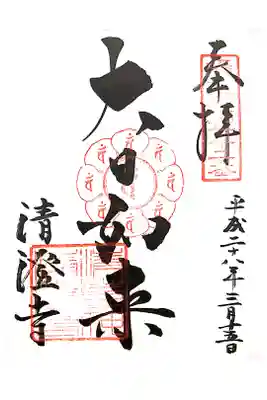 奉拝
平成二十八年三月十五日
大日如来
清澄寺